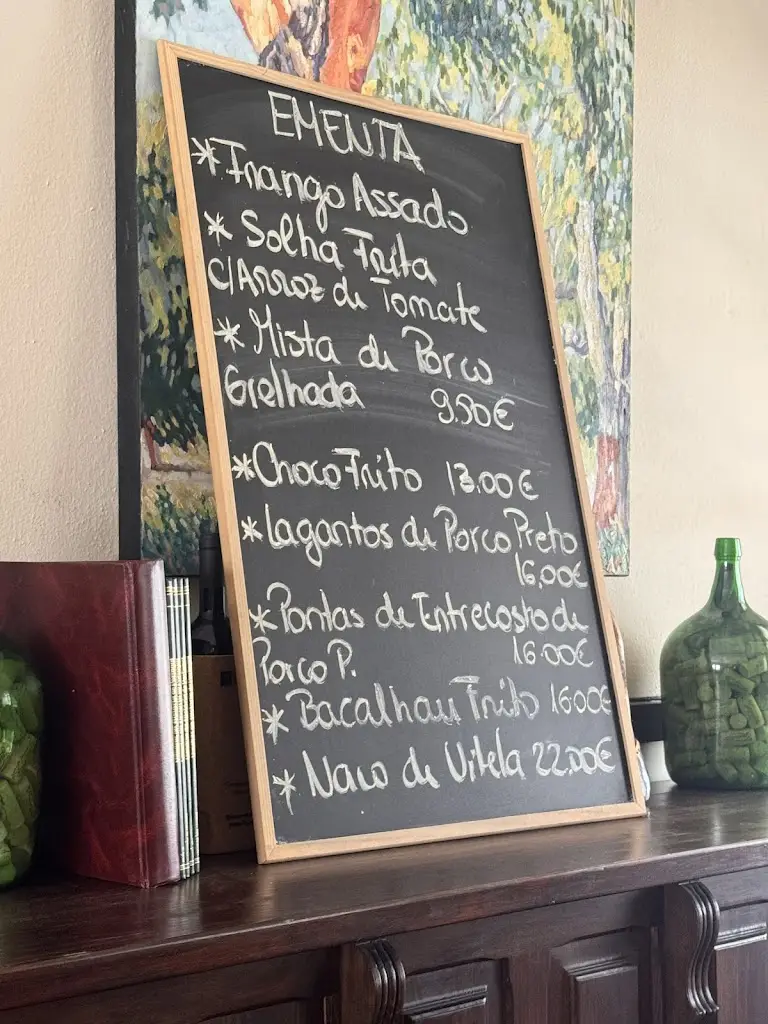 EMENTA
*Frango Assado
* Solha Frita
C/Arroz de Tomate
* Mista de Porco
Grelhada 9.50€
*Choco Frito 13.00€
*Lagantos de Porco Preto
16.00€
*Pontas de Entrecosto de
Porco P. 16.00€
* Bacalhau Frito 16.00€
* Naco de Vitela 22.00€